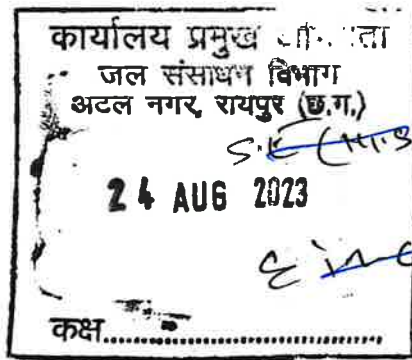 कार्यालय प्रमुख
जल संसाधन विभाग
अटल नगर, रायपुर (छ.ग.)
S.E (H.S
24 AUG 2023
कक्ष..............................